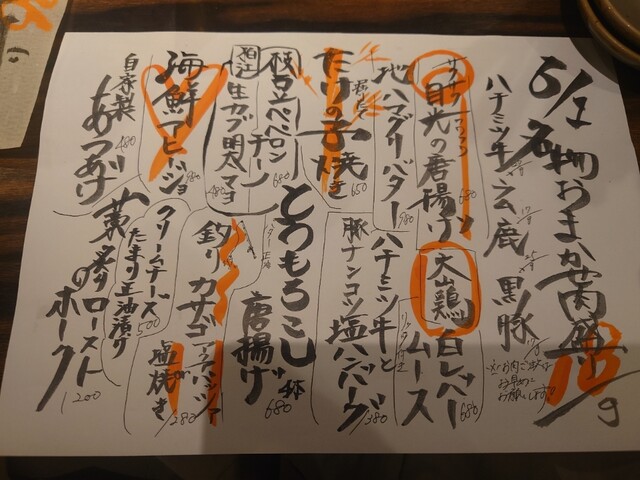 6/1 名物おまかせ肉盛
18/g
ハチミツ牛 ラム 鹿 黒豚
※お肉ご注文は
お早めに
お願いします
サクサク
目光の唐揚げ 680
大山鶏 白レバームース 680
地ハマグリバター 980
ハチミツ牛と
豚ナンコツ塩ハンバーグ 1380
たけの子焼き 650
とうもろこし唐揚げ 1本 680
バター正油
枝豆ペペロンチーノ 680
狛江 生カブ明太マヨ 480
釣りカサゴ アクアパッツァ
塩焼き 1280
海鮮アヒージョ 980
クリームチーズ
たまり正油漬け 500
自家製
あつあげ 480
藁炙りロースト
ポーク 1200